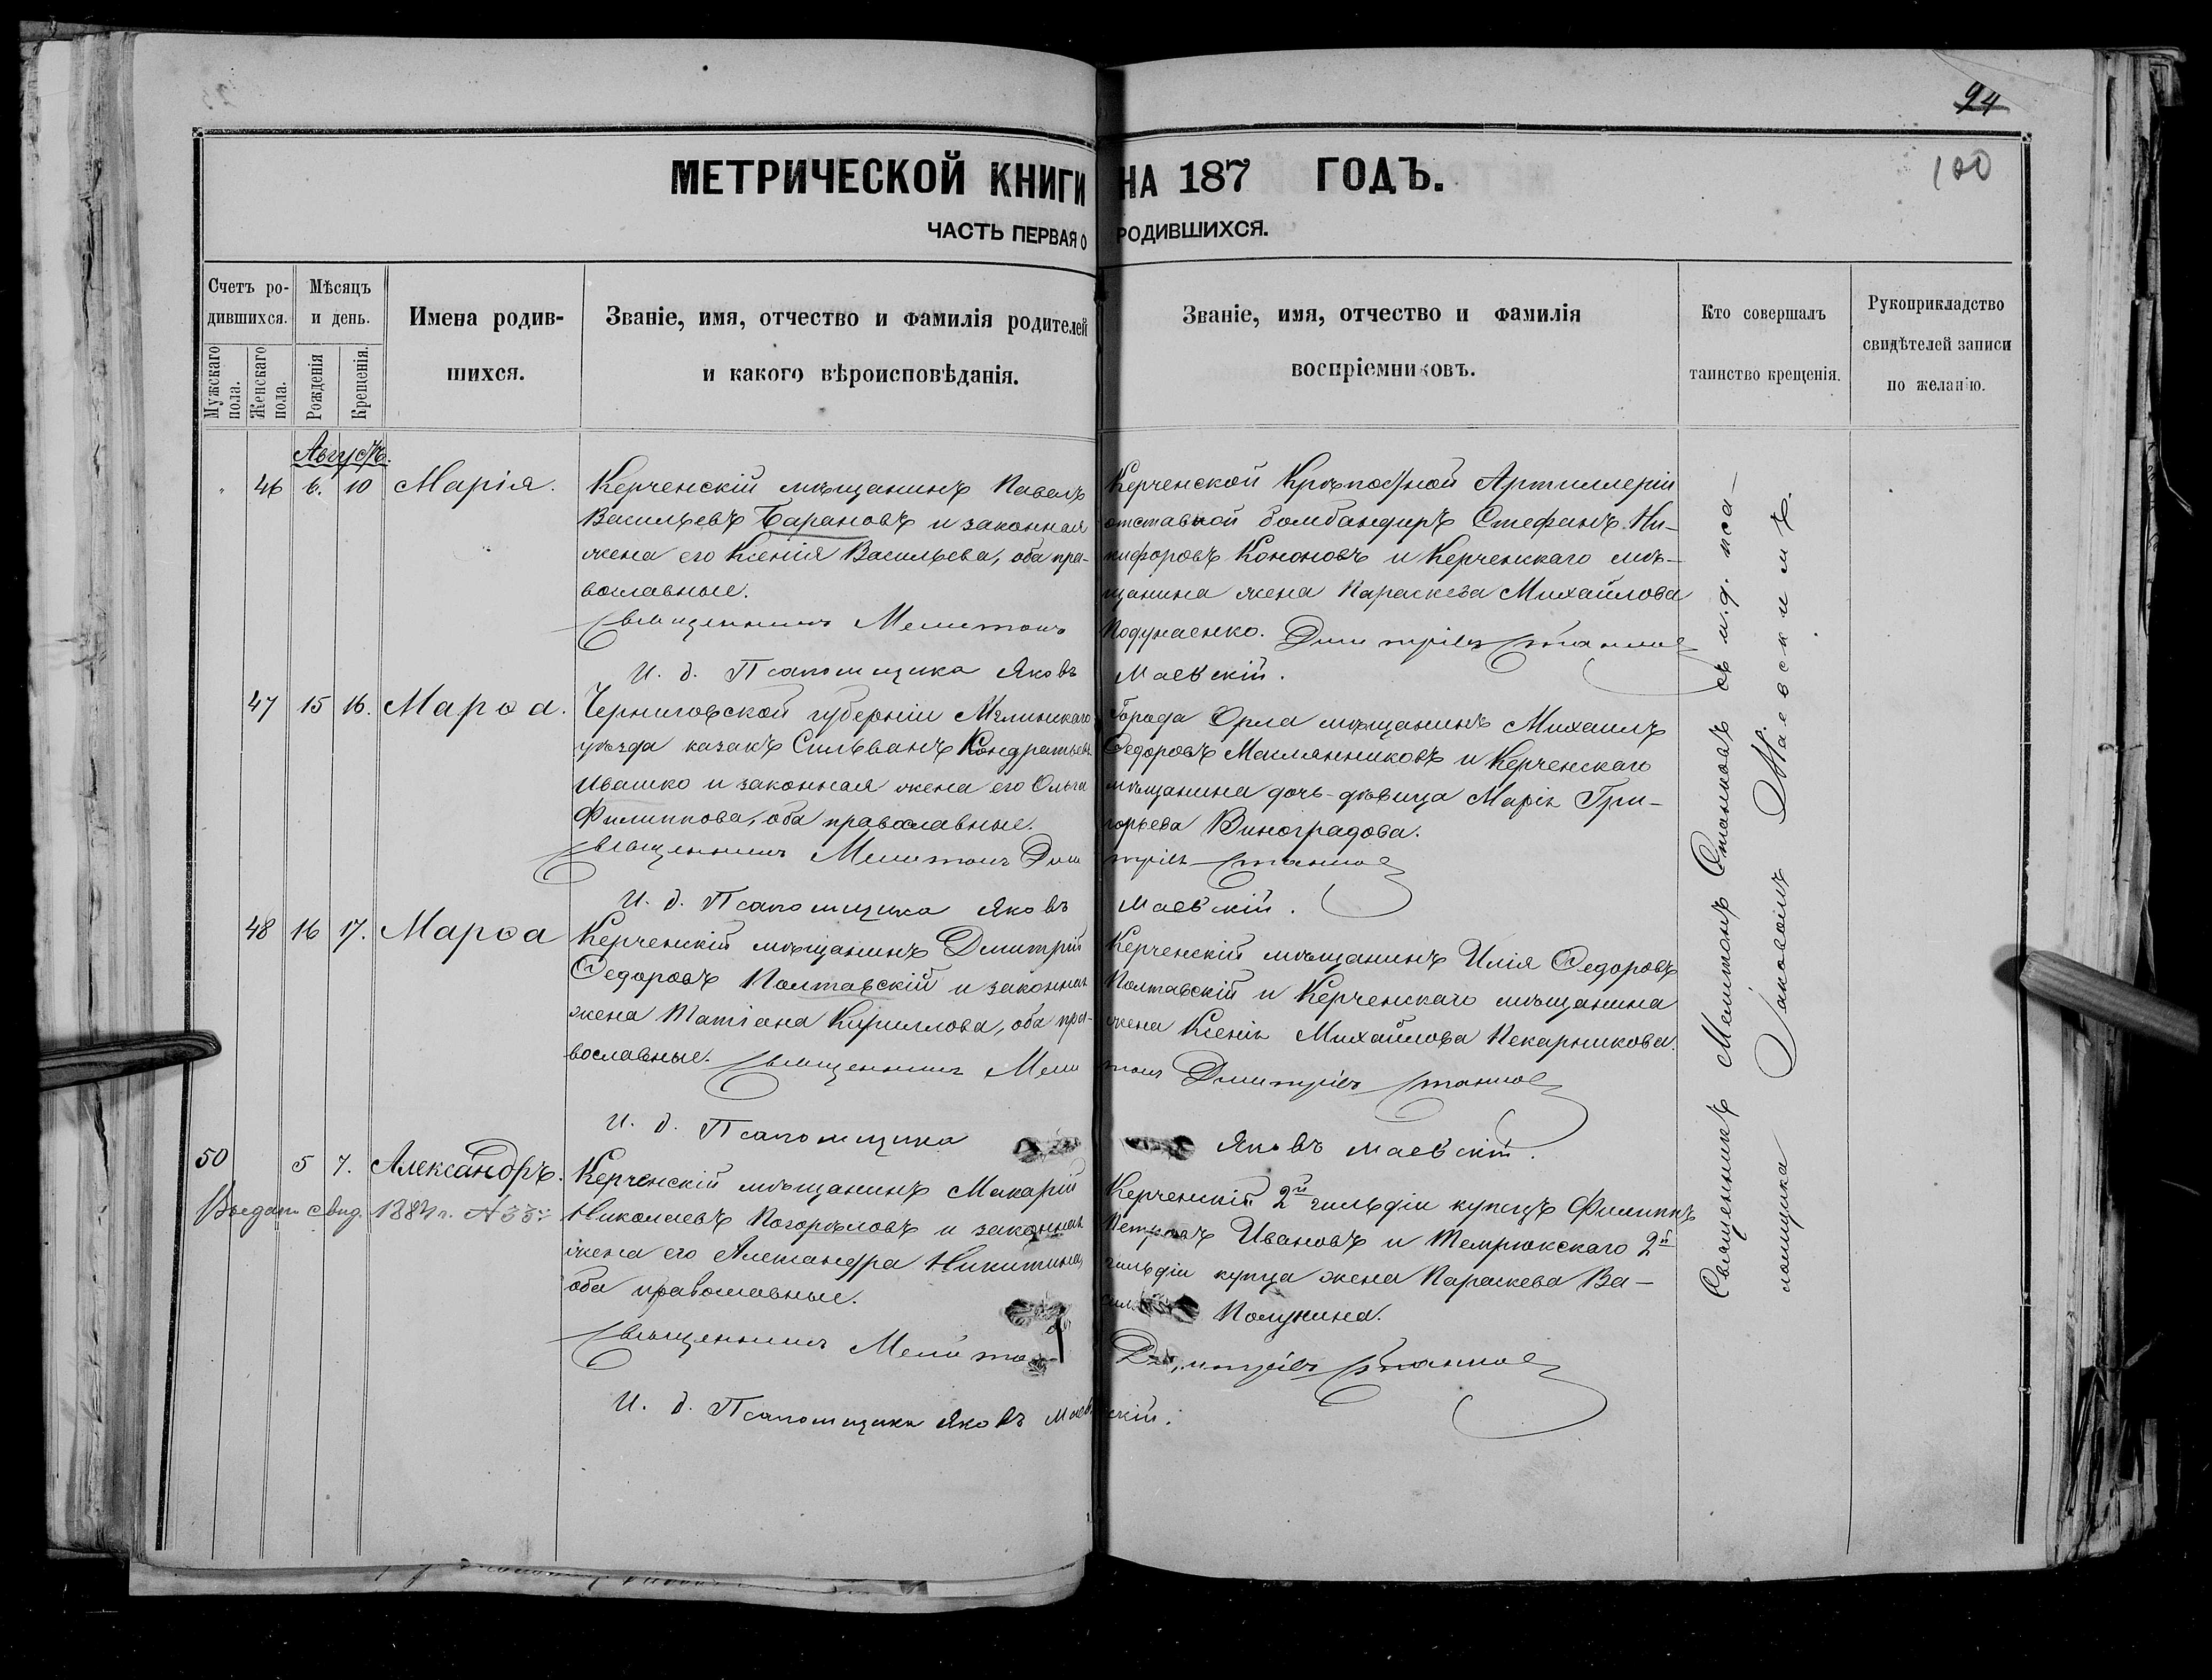 94
100
МЕТРИЧЕСКОЙ КНИГИ НА 187 ГОДЪ.
ЧАСТЬ ПЕРВАЯ О РОДИВШИХСЯ.
Счетъ ро-
дившихся.
Мужскаго
пола.
Женскаго
пола.
Мѣсяцъ
и день.
Рожденія
Крещенія.
Имена родив-
шихся.
Званіе, имя, отчество и фамилія родителей
и какого вѣроисповѣданія.
Званіе, имя, отчество и фамилія
воспріемниковъ.
Кто совершалъ
таинство крещенія.
Рукоприкладство
свидѣтелей записи
по желанію.
Августъ.
46 6. 10 Марія.
Керченскій мѣщанинъ Павелъ
Васильевъ Барановъ и законная
жена его Ксенія Васильева, оба пра-
вославные.
Керченской Крѣпостной Артиллеріи
отставной бомбандиръ Стефанъ Ни-
кифоровъ Кононовъ и Керченскаго мѣ-
щанина жена Параскева Михайлова
Подунаенко.
Священникъ Мелитонъ Димитріевъ Станковъ
И. д. Псаломщика Яковъ Маевскій.
47 15 16. Марѳа.
Черниговской губерніи Мглинскаго
уѣзда казакъ Сильванъ Кондратьевъ
Ивашко и законная жена его Ольга
Филиппова, оба православные.
Города Орла мѣщанинъ Михаилъ
Ѳедоровъ Маслянниковъ и Керченскаго
мѣщанина дочь-дѣвица Марія Гри-
горьева Виноградова.
Священникъ Мелитонъ Димитріевъ Станковъ
И. д. Псаломщика Яковъ Маевскій.
48 16 17. Марѳа
Керченскій мѣщанинъ Дмитрій
Ѳедоровъ Полтавскій и законная
жена Татіана Кириллова, оба пра-
вославные.
Керченскій мѣщанинъ Илія Ѳедоровъ
Полтавскій и Керченскаго мѣщанина
жена Ксенія Михайлова Пекарникова.
Священникъ Мелитонъ Димитріевъ Станковъ
И. д. Псаломщика Яковъ Маевскій.
50 5 7. Александръ.
Выдано свид. 1884 г.
Керченскій мѣщанинъ Макарій
Николаевъ Погорѣловъ и законная
жена его Александра Никитина,
оба православные.
Керченскій 2й гильдіи купецъ Филиппъ
Петровъ Ивановъ и Темрюкскаго 2й
гильдіи купца жена Параскева Ва-
Полунина.
Священникъ Мелитонъ Димитріевъ Станковъ
И. д. Псаломщика Яковъ Маевскій.
Священникъ Мелитонъ Станковъ съ и.д. пса-
ломщика Іаковомъ Маевскимъ.